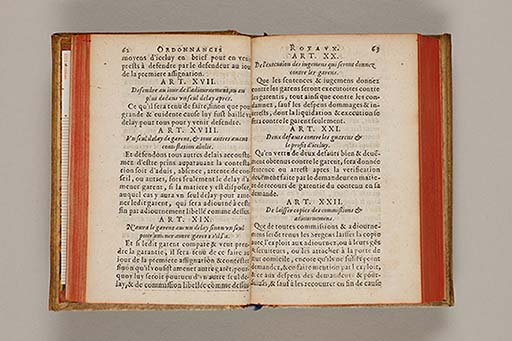 62 ORDONNANCES
moyens d'iceluy en brief pour en venir
prests à defendre par le defendeur au iour
de la premiere assignation.
ART. XVII.
Defendre au iour de l'adiournement, ou au
plus dedans vn seul delay apres.
Ce qu'il sera tenu de faire, sinon que pour
grande & euidente cause luy fust baillé vn
delay pour tous pour y venir defendre.
ART. XVIII.
Vn seul delay de garent, & tout autre
contestation abolie.
Et defendons tous autres delais accoustu-
mez d'estre prins auparauant la contesta-
tion soit d'aduis, absence, attente de con-
seil, ou autres, fors seulement le delay d'a-
mener garent, si la matiere y est disposee,
auquel cas y aura vn seul delay pour ame-
ner ledit garent, qui sera adiourné à ceste
fin par adiournement libellé comme dessus
ART. XIX.
N'aura le garent aucun delay sinon vn seul
pour amener autre garent
Et si ledit garent compare & veut pren-
dre la garantie, il sera tenu de ce faire au
iour de la premiere assignation & contester
sinon qu'il voulsist amener autre garet, pour
quoy luy seroit pourueu d'vn autre seul de-
lay, & de commission libellée comme dessus
ROYAVX. 63
ART. XX.
De l'execution des iugemens qui seront donnez
contre les garens.
Que les sentences & iugemens donnez
contre les garens seront executoires contre
les garentis, tout ainsi que contre les con-
damnez, sauf les despens dommages & in-
terests, dont la liquidation & execution se
fera contre le garent seulement.
ART. XXI.
Deux defauts contre les garens &
le profit d'iceluy.
Qu'en vertu de deux defauts bien & deuë-
mens obtenus contre le garent, sera donnée
sentence ou arrest apres la verification
deuëment faite par le demandeur en matie-
re de recours de garentie du contenu en sa
demande.
ART. XXII.
De laisser copie des commissions &
adiournemens.
Que de toutes commissions & adiourne-
mens seront tenus les sergens laisser la copie
auec l'exploit aux adiournez, ou à leurs gés
& seruiteurs, ou les attacher à la porte de
leur domicile, encore qu'ils ne fussent point
demandez, & en faire mention par l'exploit,
& ce aux despens des demandeurs & pour-
suiuans, & sauf à les recouurer en fin de cause